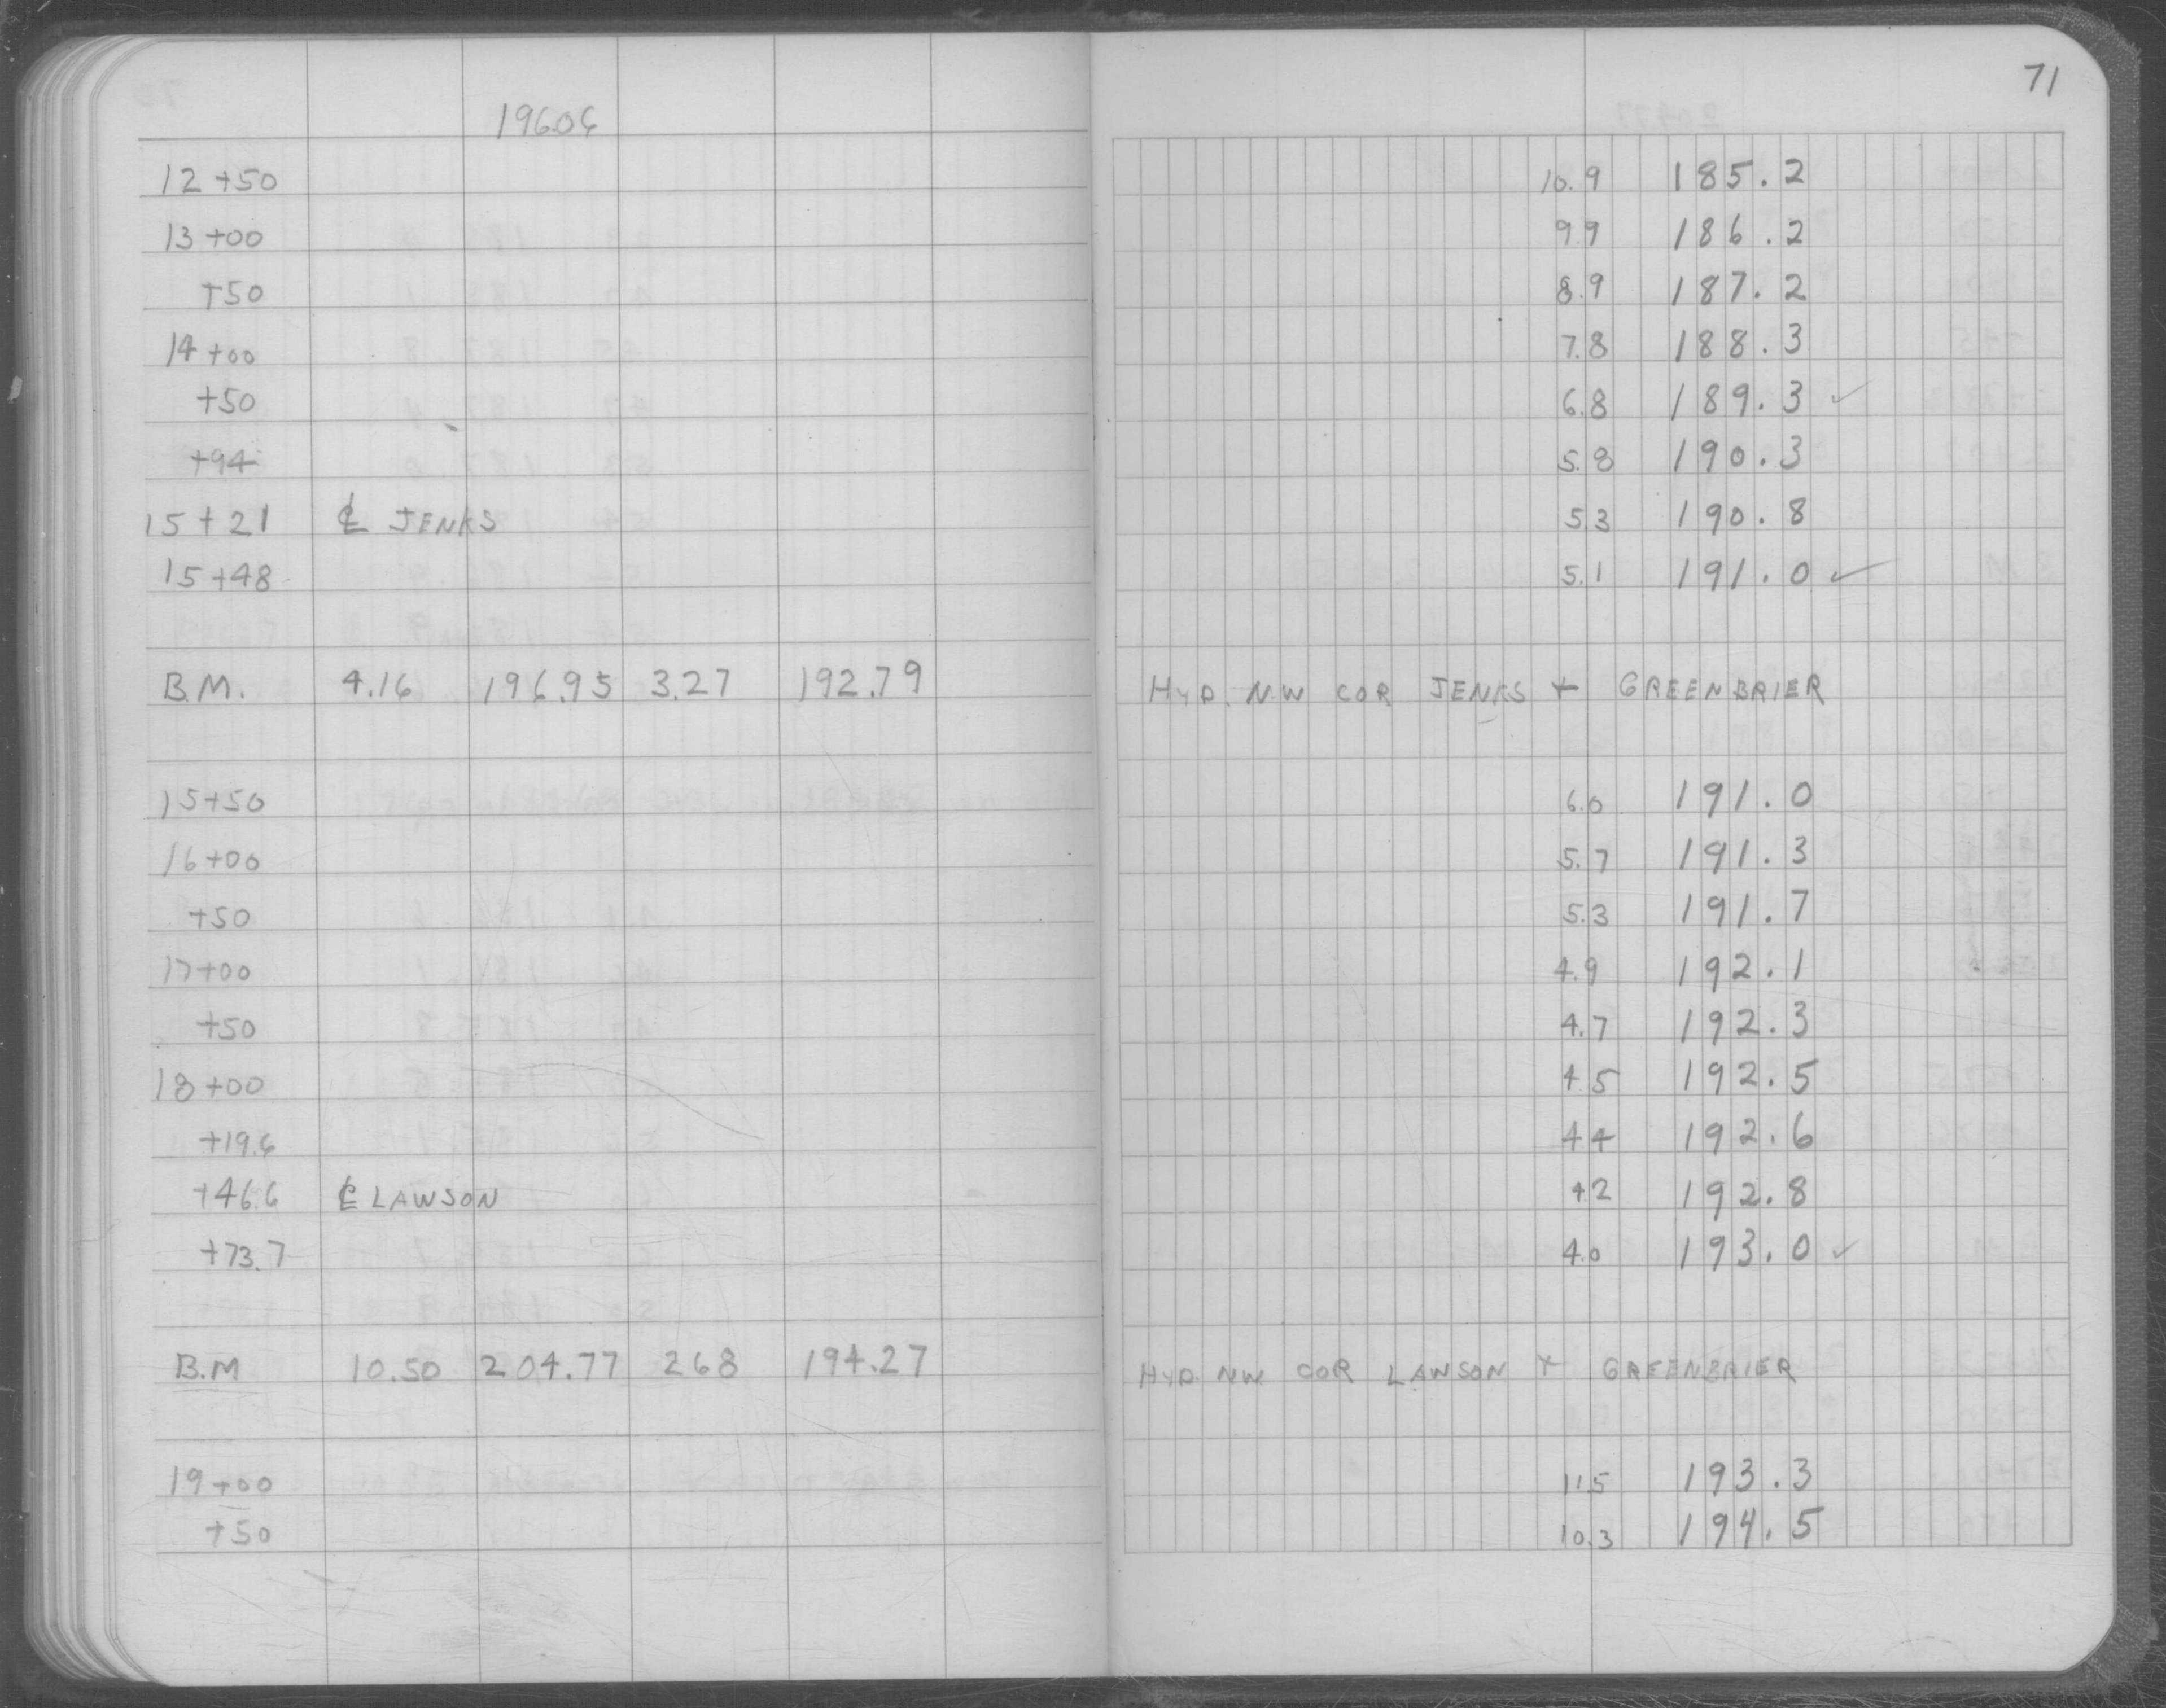 71
19606
12+50 10.9 185.2
13+00 9.9 186.2
+50 8.9 187.2
14+00 7.8 188.3
+50 6.8 189.3 ✓
+94 5.8 190.3
15+21 ℄ JENKS 5.3 190.8
15+48 5.1 191.0 ✓
B.M. 4.16 196.95 3.27 192.79 HYD. N.W COR JENKS + GREENBRIER
15+50 6.0 191.0
16+00 5.7 191.3
+50 5.3 191.7
17+00 4.9 192.1
+50 4.7 192.3
18+00 4.5 192.5
+19.6 4.4 192.6
+46.6 ℄ LAWSON 4.2 192.8
+73.7 4.0 193.0 ✓
B.M 10.50 204.77 268 194.27 HYD NW COR LAWSON + GREENBRIER
19+00 11.5 193.3
+50 10.3 194.5